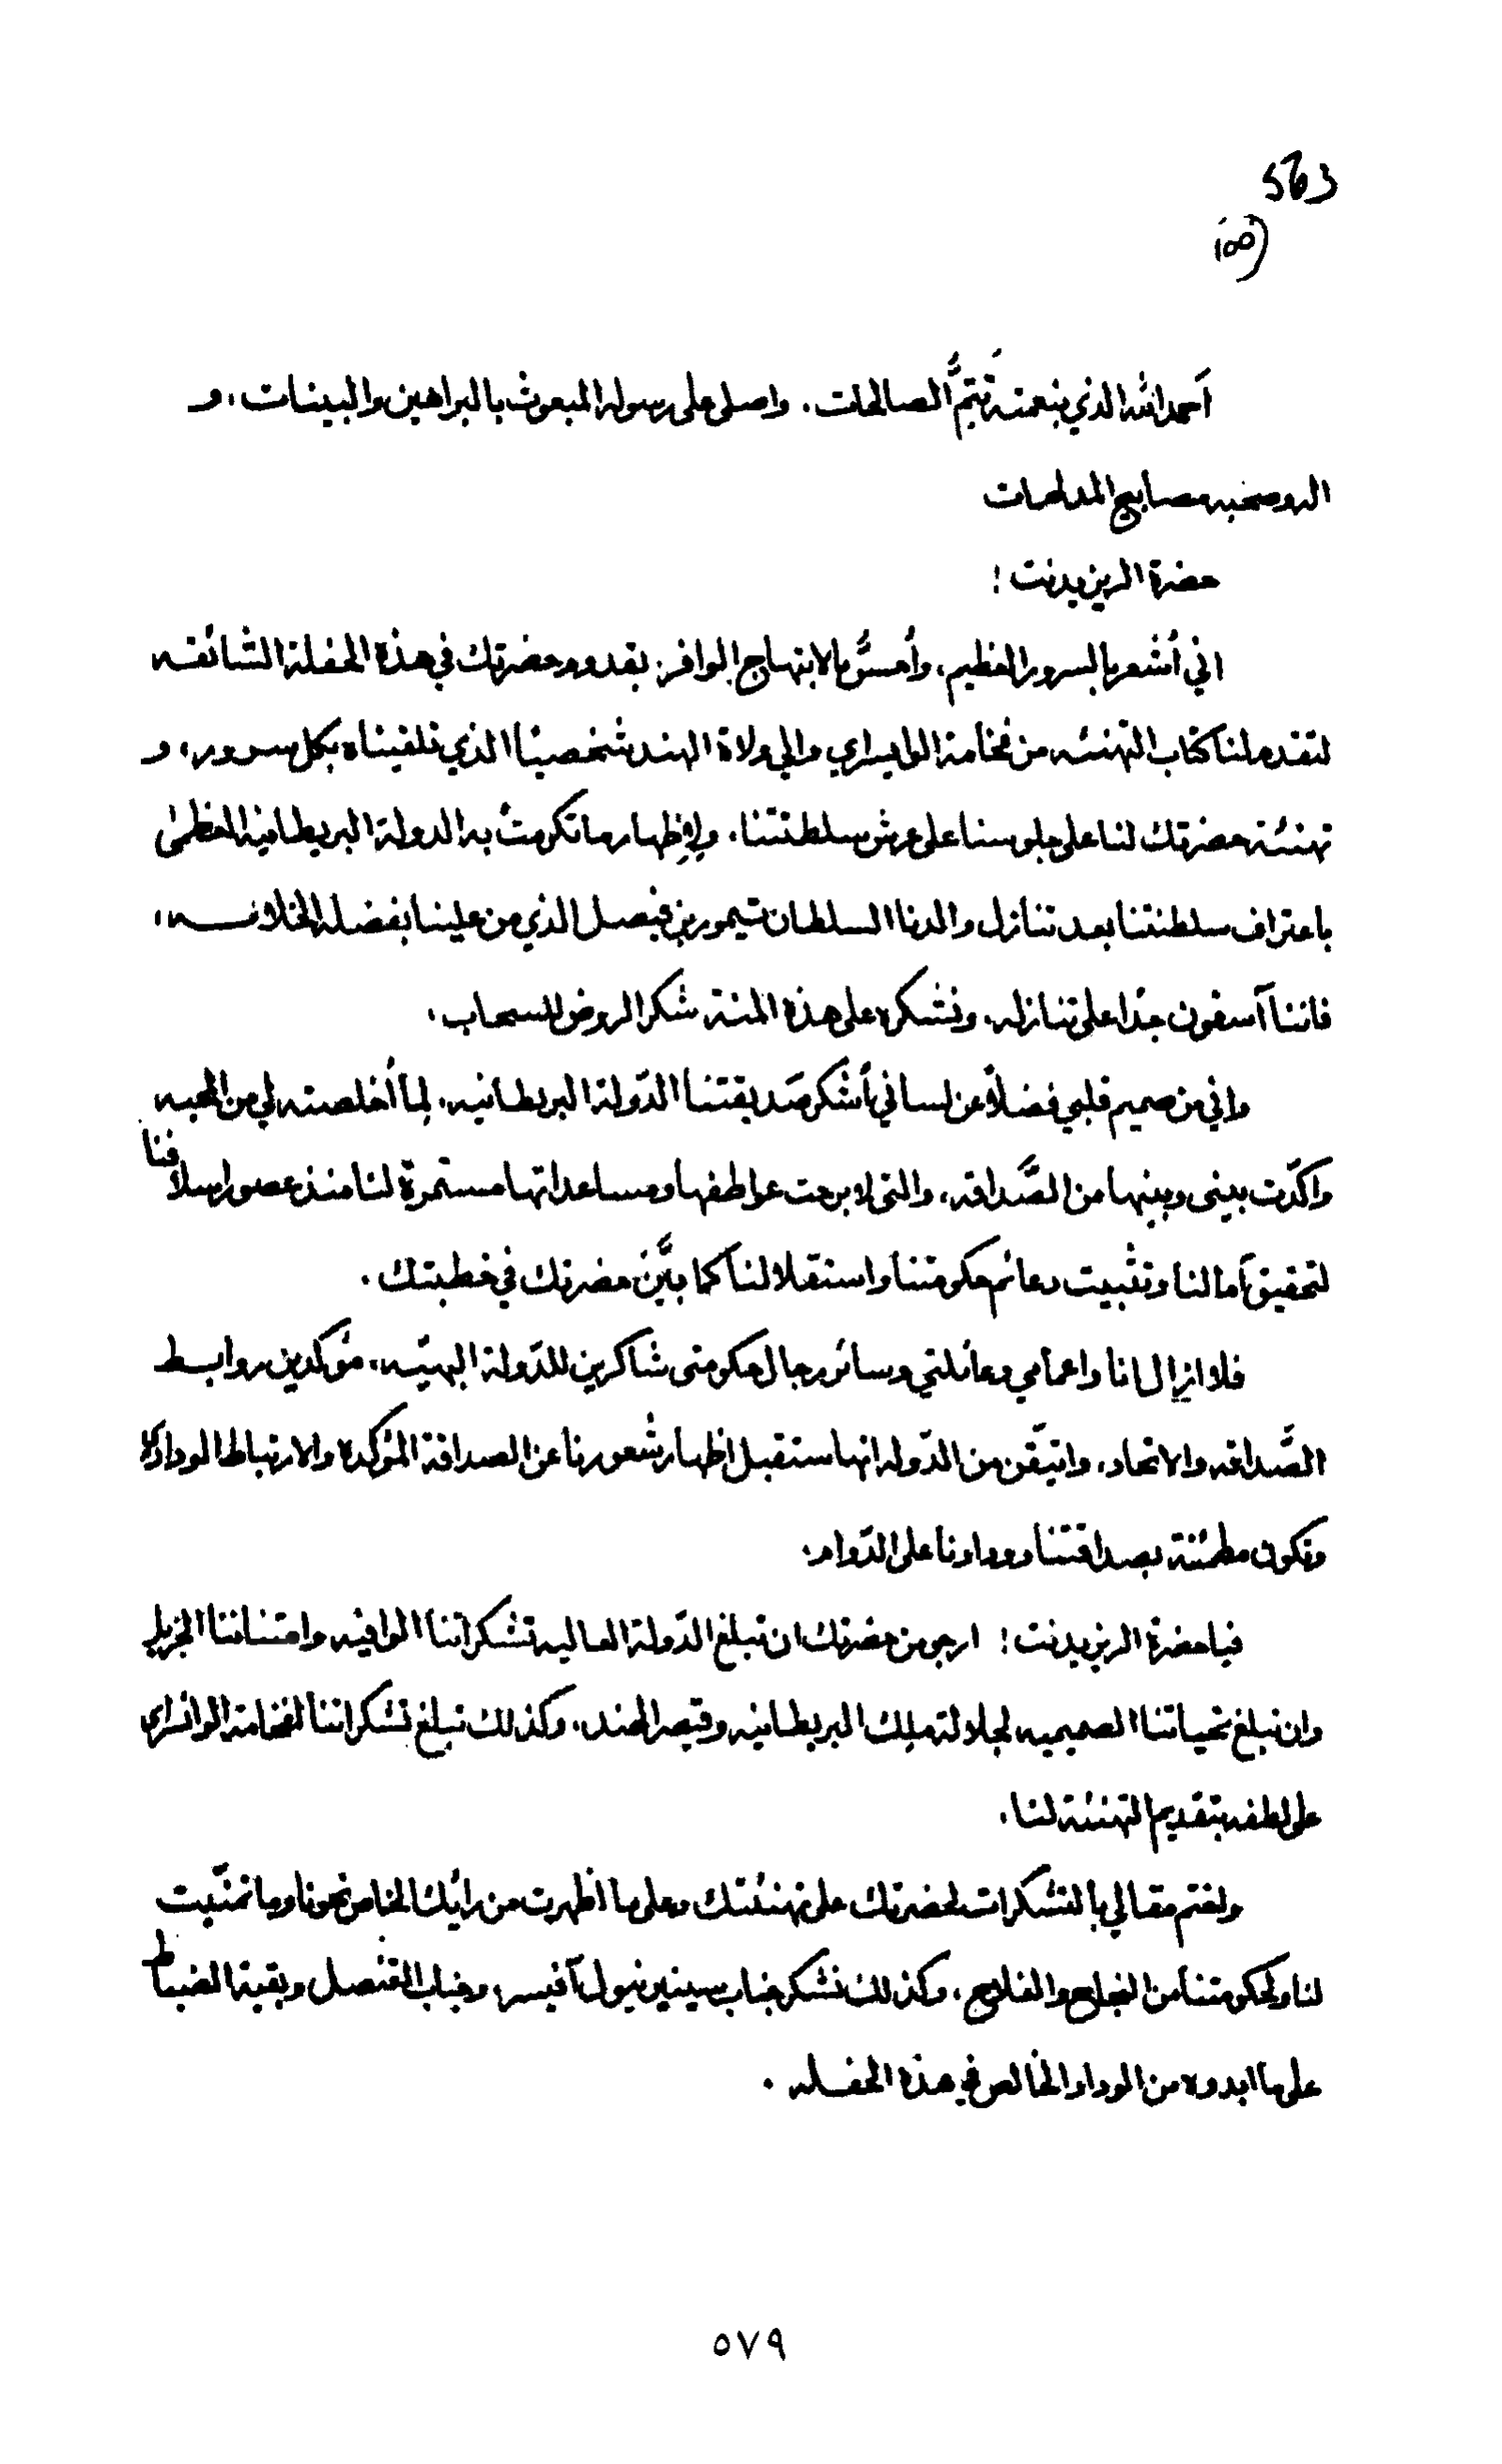 563
(١٥٥
أحمد الله الذي بنعمته تَتِمُّ الصالحات، واصلى على رسوله المبعوث بالبراهين والبينات، و
اله وصحبه مصابيح المدلهمات
حضرة الريزيدنت !
اني أشعر بالسرور العظيم، وأحسُّ بالابتهاج الوافر، بقدوم حضرتك في هذه الحفلة الشائقه
لتقدم لنا كتاب التهنئه من فخامة الوايسراي والي ولاة الهند شخصيا الذي تلقيناه بكل سرور، و
تهنئة حضرتك لنا على جلوسنا على عرش سلطنتنا، ولإظهار ما تكرمتْ به الدولة البريطانية العظمى
باعتراف سلطنتنا بعد تنازل والدنا السلطان تيمور بن فيصل الذي من علينا بفضله الخلافه،
فاننا آسفون جدّا على تنازله، ونشكره على هذه المنة شكر الروض للسحاب.
واني من صميم قلبي فضلاً عن لساني أشكر صَديقتنا الدّولة البريطانيه، لِما أخلصته لي من المحبه
واكدّت بينى وبينها من الصَّداقه، والتى لا برحت عواطفها ومساعداتها مستمرة لنا منذ عصور اسلافنا
لتحقيق آمالنا وتثبيت دعائم حكومتنا واستقلالنا كما بيَّن حضرتك في خطبتك.
فلا ازال انا واعمامي وعائلتي وسائر رجال حكومتى شاكرين للدّولة البهيّه، مؤكدين روابط
الصَّداقه والاتحاد، واتيقّن من الدّوله انها ستقبل اظهار شعورنا عن الصداقة المؤكدة والارتباط الودادي
وتكون مطمئنة بصداقتنا وودادنا على الدّوام.
فيا حضرة الريزيدنت ! ارجو من حضرتك ان تبلغ الدّولة العاليه تشكراتنا الوافيه وامتناننا الجزيل
وان تبلغ تحياتنا الصميميه لجلالة ملك البريطانيه وقيصر الهند، وكذلك تبلغ تشكراتنا لفخامة الوائسراى
على لطفه بتقديم التهنئة لنا.
ولختم مقالي بالتشكرات لحضرتك على تهنئتك وعلى ما اظهرت من رائيك الخاص نحونا وما تمنّيت
لنا ولحكومتنا من النجاح والفلاح، وكذلك نشكر جناب سينير نيول آفيسر، وجناب القنصل وبقية الضباط
على ما ابدوه من الوداد الخالص في هذه الحفله .
٥٧٩